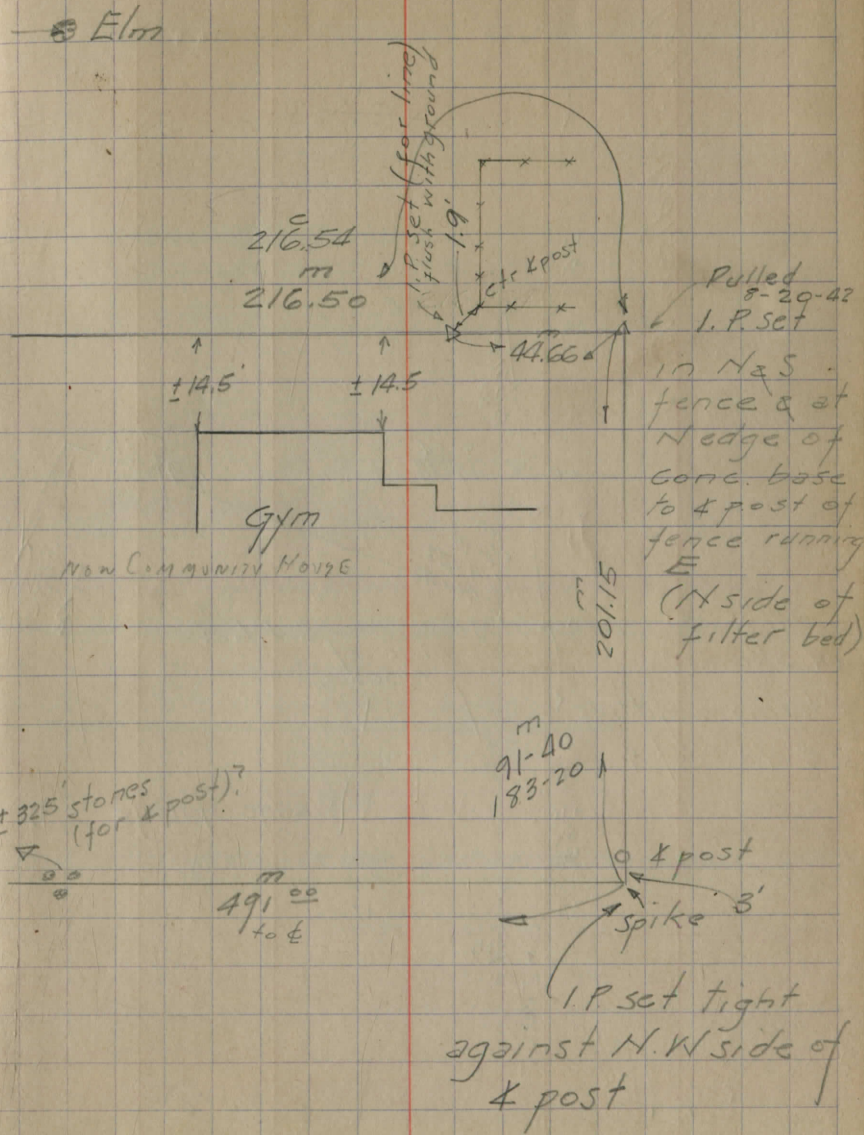 Elm
I.P. set (for line)
flush with ground
1.9'
ctr ∠ post
c
216.54
m
216.50
m
44.66
Pulled
8-20-42
I.P. set
in N & S
fence & at
N edge of
conc. base
to ∠ post of
fence running
E
(N side of
filter bed)
±14.5'
±14.5
Gym
NOW COMMUNITY HOUSE
m
201.15
m
91-40
183-20
±325' stones
(for ∠ post)?
m
491 00
to ℄
∠ post
3'
spike
I.P. set tight
against N.W side of
∠ post